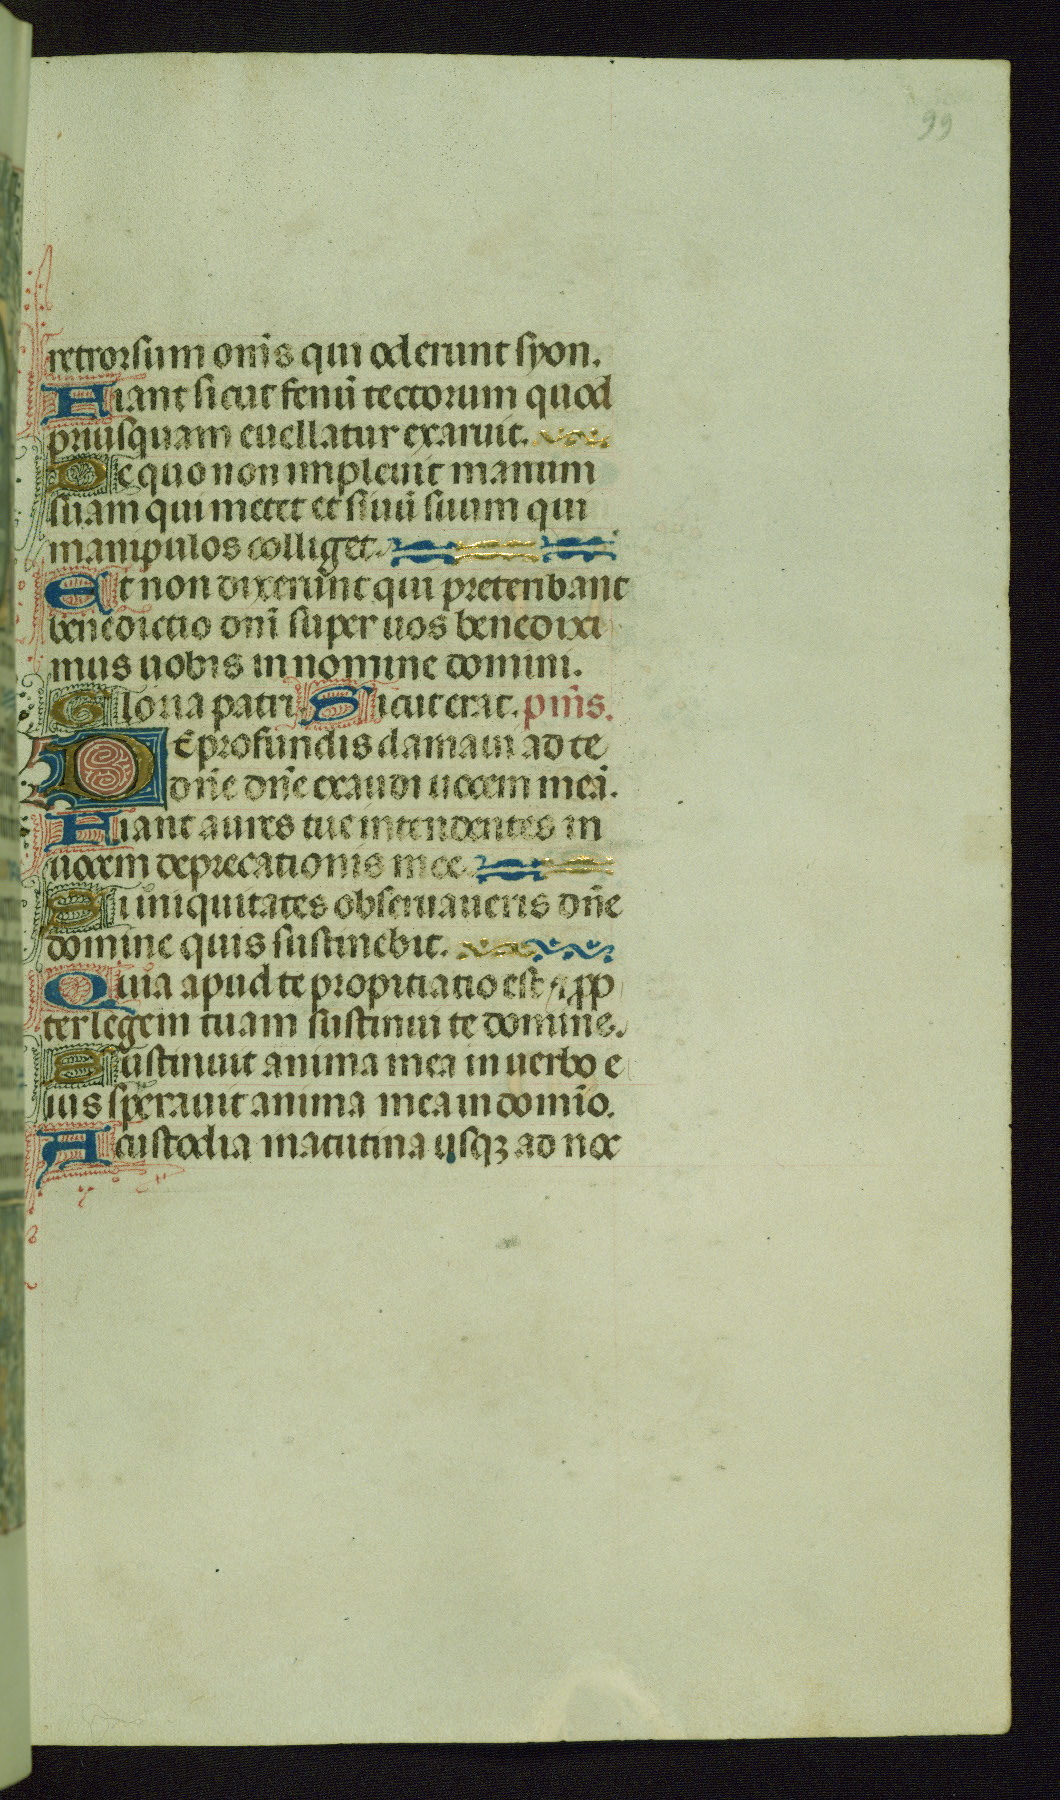 99
retrorsum om̄s qui oderunt syon.
Fiant sicut fenū tectorum quod
priusquam euellatur exaruit.
De quo non impleuit manum
suam qui metet et sinū suum qui
manipulos colliget.
Et non dixerūnt qui preteribant
benedictio dn̄i super uos benedixi
mus uobis in nomine domini.
Gloria patri. Sicut erat. pm̄s.
De profundis clamaui ad te
dn̄e dn̄e exaudi uocem meā.
Fiant aures tue intendentes in
uocem deprecationis mee.
Si iniquitates obseruaueris dn̄e
domine quis sustinebit.
Quia apud te propitiatio est / ⁊ ꝓp
ter legem tuam sustinui te domine.
Sustinuit anima mea in uerbo e
ius sperauit anima mea in domīo.
A custodia matutina usqꝫ ad noc